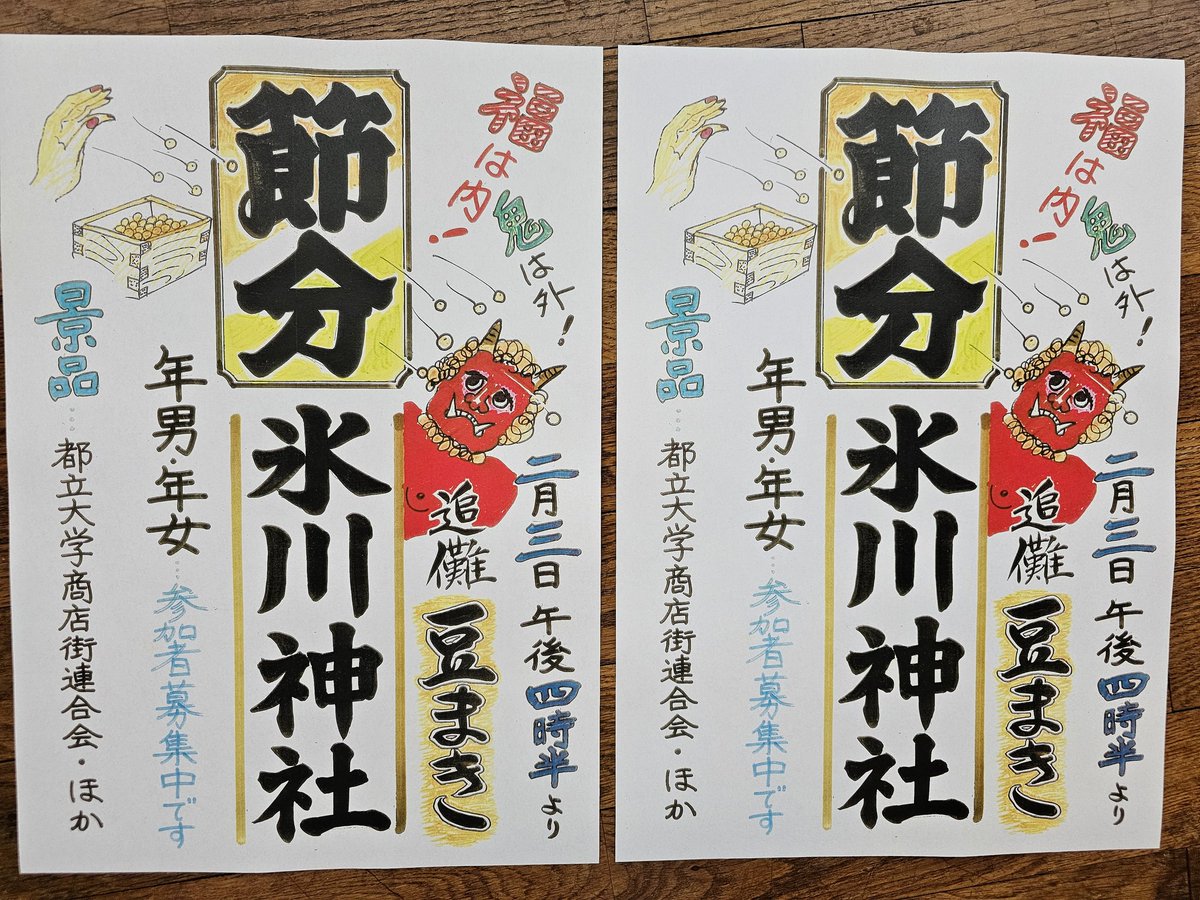 福は内!
鬼は外!
二月三日 午後四時半より
追儺 豆まき
節分
氷川神社
年男・年女…参加者募集中です
景品…都立大学商店街連合会・ほか
福は内!
鬼は外!
二月三日 午後四時半より
追儺 豆まき
節分
氷川神社
年男・年女…参加者募集中です
景品…都立大学商店街連合会・ほか